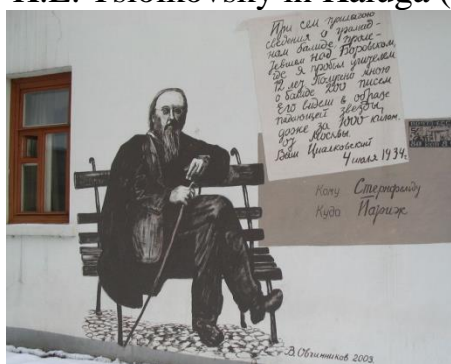 K.E. Tsiolkovsky in Kaluga (
При сем прилагаю
сведения о громад-
ном болиде, проле-
тевшем над Боровском,
где я пробыл учителем
12 лет. Получено мною
о болиде 200 писем
Его видели в образе
падающей звезды,
даже за 1000 килом.
от Москвы.
Ваш Циалковский
4 июля 1934.
Кому Стернфельду
Куда Париж
В. Овчинников 2003.